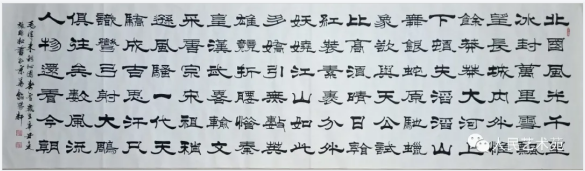 北國風光千里
冰封萬里雪飄
望長城內外惟
餘莽莽大河上
下頓失滔滔山
舞銀蛇原馳蠟
象欲與天公試
比高須晴日看
紅裝素裹分外
妖嬈江山如此
多嬌引無數英
雄競折腰惜秦
皇漢武略輸文
采唐宗宋祖稍
遜風騷一代天
驕成吉思汗只
識彎弓射大鵰
俱往矣數風流
人物還看今朝
毛澤東詞沁園春雪
人民艺术苑